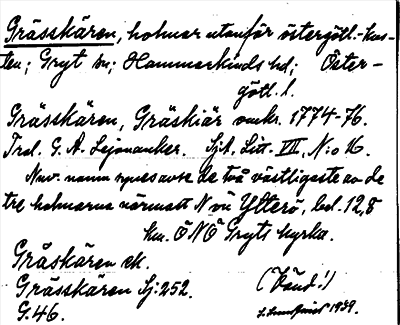 Grässkären, holmar utanför östergötl.-kus-
ten; Gryt sn; Hammarkinds hd; Öster-
götl. l.
Grässkären, Gräskiär omkr. 1774-76.
Trol. G. A. Lejonancker. Sjk. Litt. VIII, N:o 16.
Nuv. namn synes avse de två västligaste av de
tre holmarna närmast N om Ytterö, bel. 12,8
km. ÖNÖ Gryts kyrka.
Gråskären ek.
Grässkären Sj: 252.
(Känd!)
G. 46.
1939.